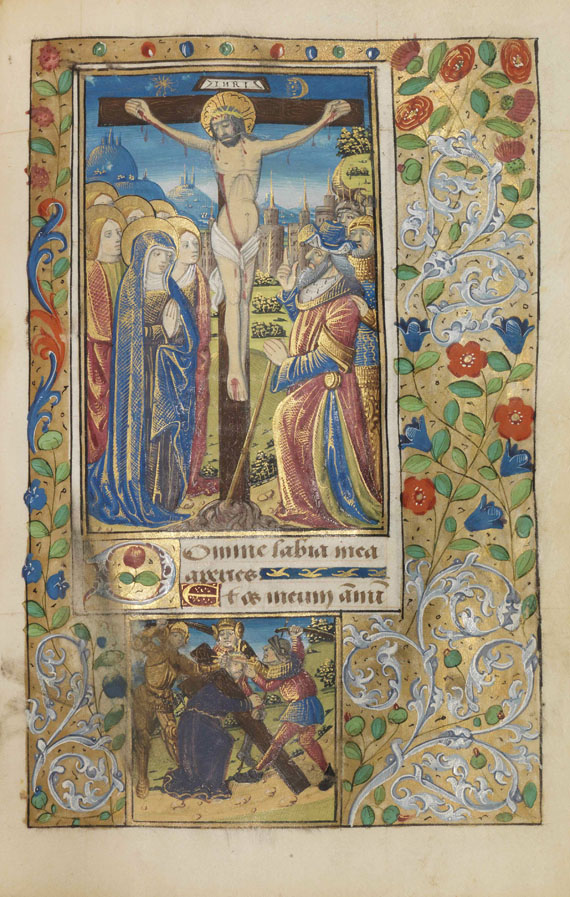 INRI
Domine labia mea
aperies
Et os meum anūt